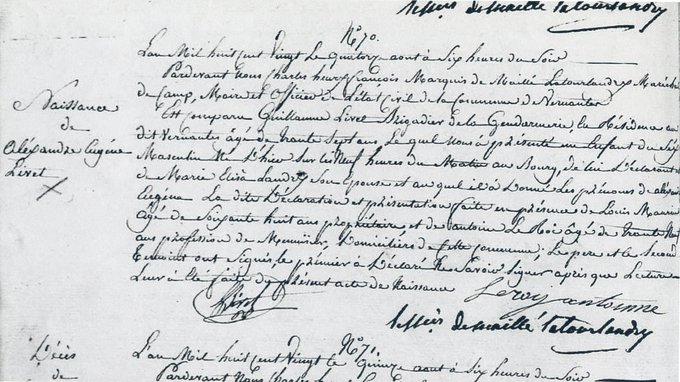 le ssers de maillé Latourlandry
N.º 70.
L'an Mil huit cent Vingt Le quatorze aout à Six heures du Soir
Pardevant Nous Charles henry francois Marquis de Maillé Latourlandry Maréchal
de Camp, Maire et Officier de L'état Civil de la Commune de Vernantes
Est comparu Guillaume Livet Brigadier de la Gendarmerie, En Résidence au
dit Vernantes âgé de trente Sept ans Le quel Nous à présenté un Enfant du Sexe
Masculin Né L'hier Sur Les Neuf heures du Matin au Bourg, de lui Déclarant
et de Marie Elisa Landry Son Epouse et au quel il à Donné Les prénoms de alexandre
Eugène La dite Déclaration et présentation faite en présence de Louis
Agé de Soixante huit ans propriétaire, et de antoine Le Roi âgé de trente
ans profession de Meunier, Domiciliés de Cette Commune; Le pere et le Second
Témoint ont Signés Le prémier à Déclaré Ne Savoir Signer après que Lecture
Leur à été faite du présent acte de Naissance
Naissance
de
Aléxandre Eugène
Livet
Livet
Leroy antoinne
de maillé Latourlandry
N.º 71.
Décès
de
L'an Mil huit cent Vingt le quinze aout à Six heures du Soir
Pardevant Nous Charles